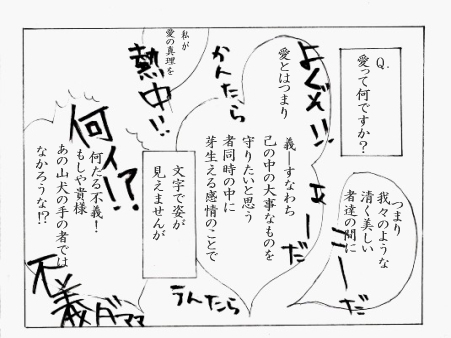 Q.
愛って何ですか?
よくぞ!!
あーだ
こーだ
つまり
我々のような
清く美しい
者達の間に
愛とはつまり
義―すなわち
己の中の大事なものを
守りたいと思う
者同時の中に
芽生える感情のことで
かんたら
うんたら
私が
愛の真理を
熱中!!
文字で姿が
見えませんが
何ィ!?
何たる不義!
もしや貴様
あの山犬の手の者では
なかろうな!?
不義ダママ